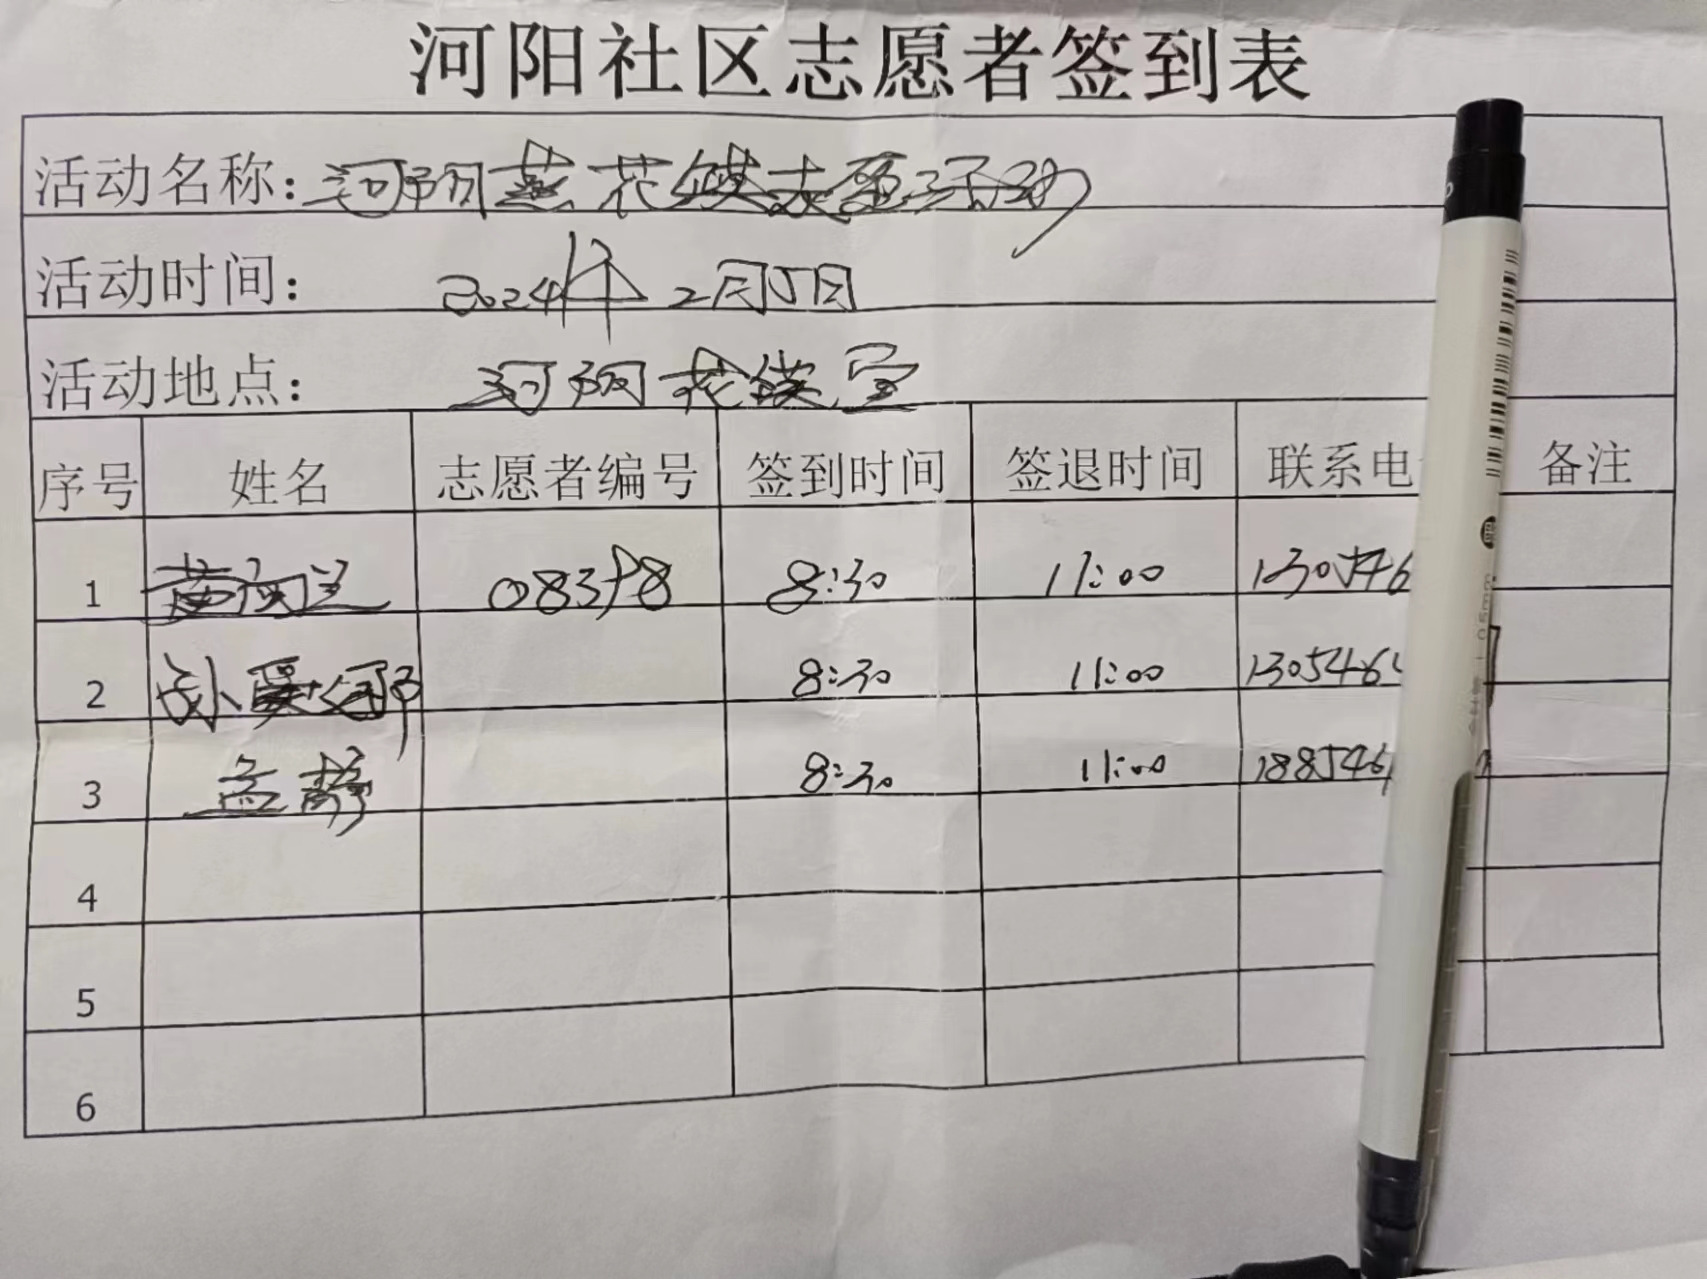 河阳社区志愿者签到表
活动名称：河阳蒸花馍志愿活动
活动时间： 2024年2月5日
活动地点： 河阳花馍室
序号 姓名 志愿者编号 签到时间 签退时间 联系电 备注
1 08358 8:30 11:00 130546
2 8:30 11:00 130546
3 孟静 8:30 11:00 188546
4
5
6